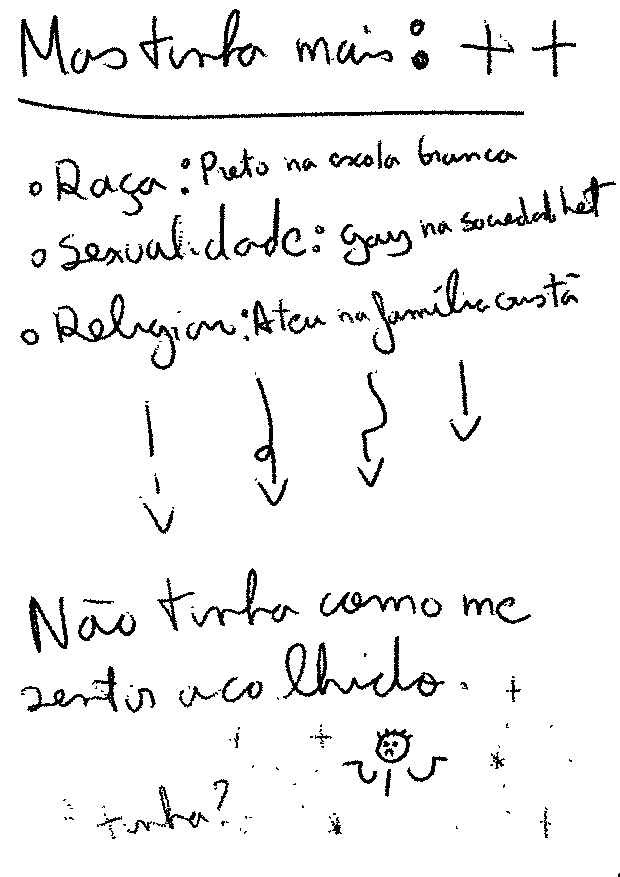 Mas tinha mais: ++
Raça: Preto na escola branca
Sexualidade: gay na sociedade het
Religion: Ateu na família cristã
Não tinha como me
sentir acolhido.
tinha?